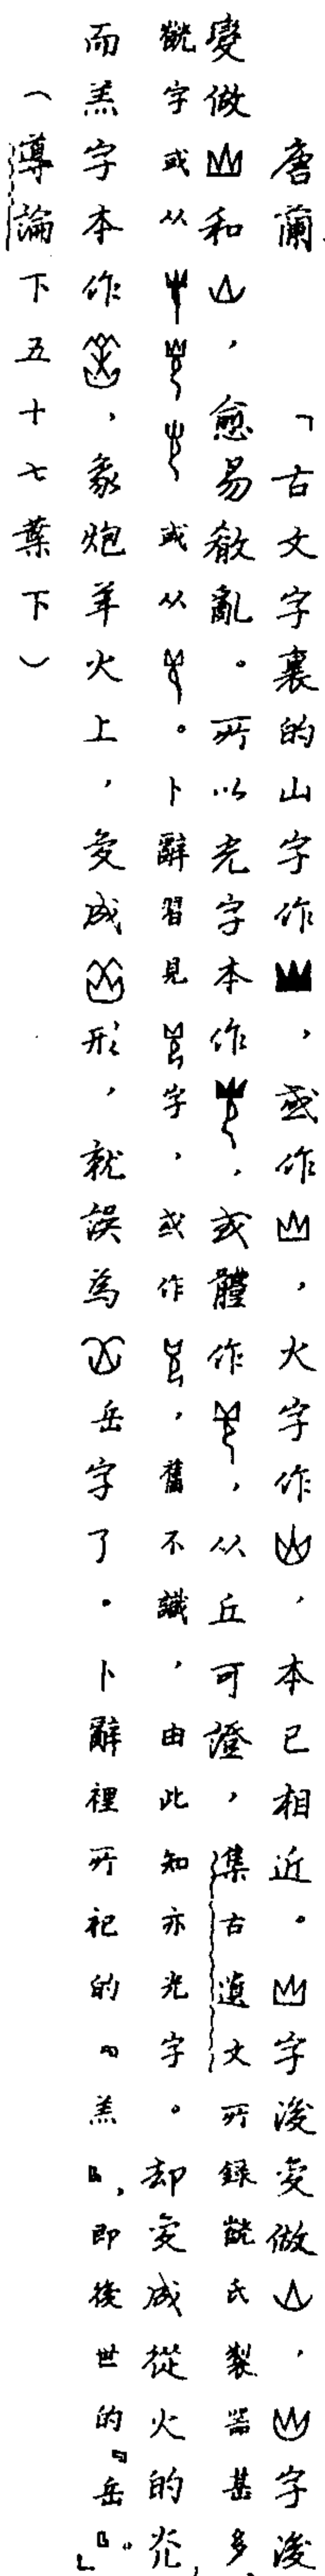 唐蘭　「古文字裏的山字作，或作，火字作，本已相近。字後變做，字後
變做和，愈易殽亂。所以光字本作，或體作，从丘可證，集古遺文所錄氏製器甚多，
字或从或从。卜辭習見字，或作，舊不識，由此知亦光字。却變成從火的灮，
而羔字本作，象炮羊火上，变成形，就誤為岳字了。卜辭裡所祀的『羔』，即後世的『岳』。」
（導論下五十七葉下）